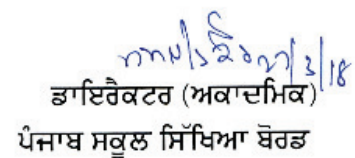 ਡਾਇਰੈਕਟਰ (ਅਕਾਦਮਿਕ)
ਪੰਜਾਬ ਸਕੂਲ ਸਿੱਖਿਆ ਬੋਰਡ